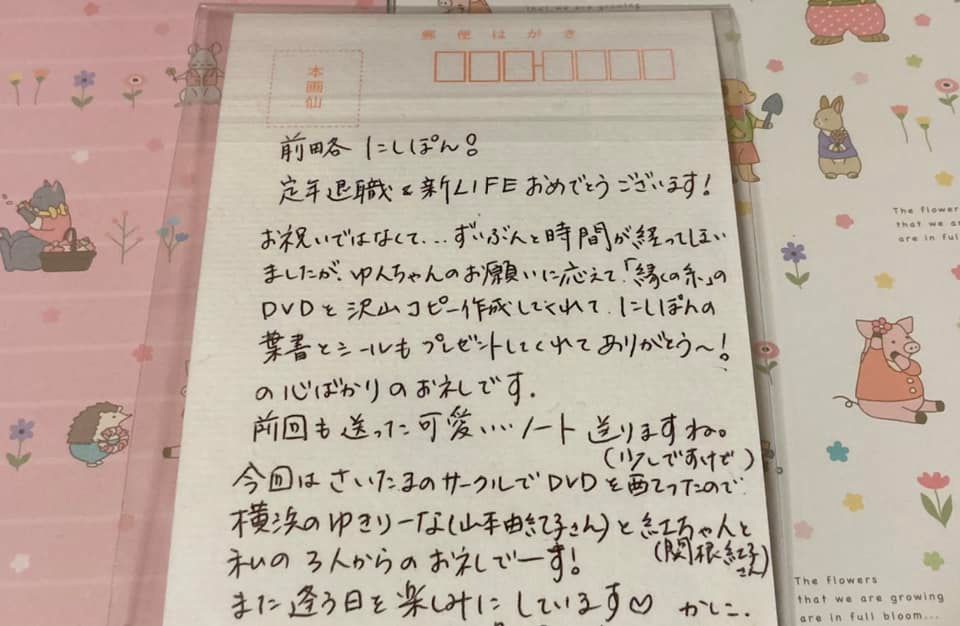 that we are growing
郵便はがき
本画仙
前略 にしぽん!
定年退職&新LIFEおめでとうございます!
お祝いではなくて...ずいぶんと時間が経ってしまい
ましたが、ゆんちゃんのお願いに応えて「縁(えにし)の糸」の
DVDを沢山コピー作成してくれて、にしぽんの
葉書とシールもプレゼントしてくれてありがとう〜!
の心ばかりのお礼です.
前回も送った可愛いいノート送りますね。
(少しですけど)
今回はさいたまのサークルでDVDを配ったので
横浜のゆきりーな(山本由紀子さん)と紅ちゃんと
(関根紅子さん)
私の3人からのお礼でーす!
また逢う日を楽しみにしています♡ かしこ.
The flowers
that we are growing
are in full bloom
The flowers
that we are growing
are in full bloom...